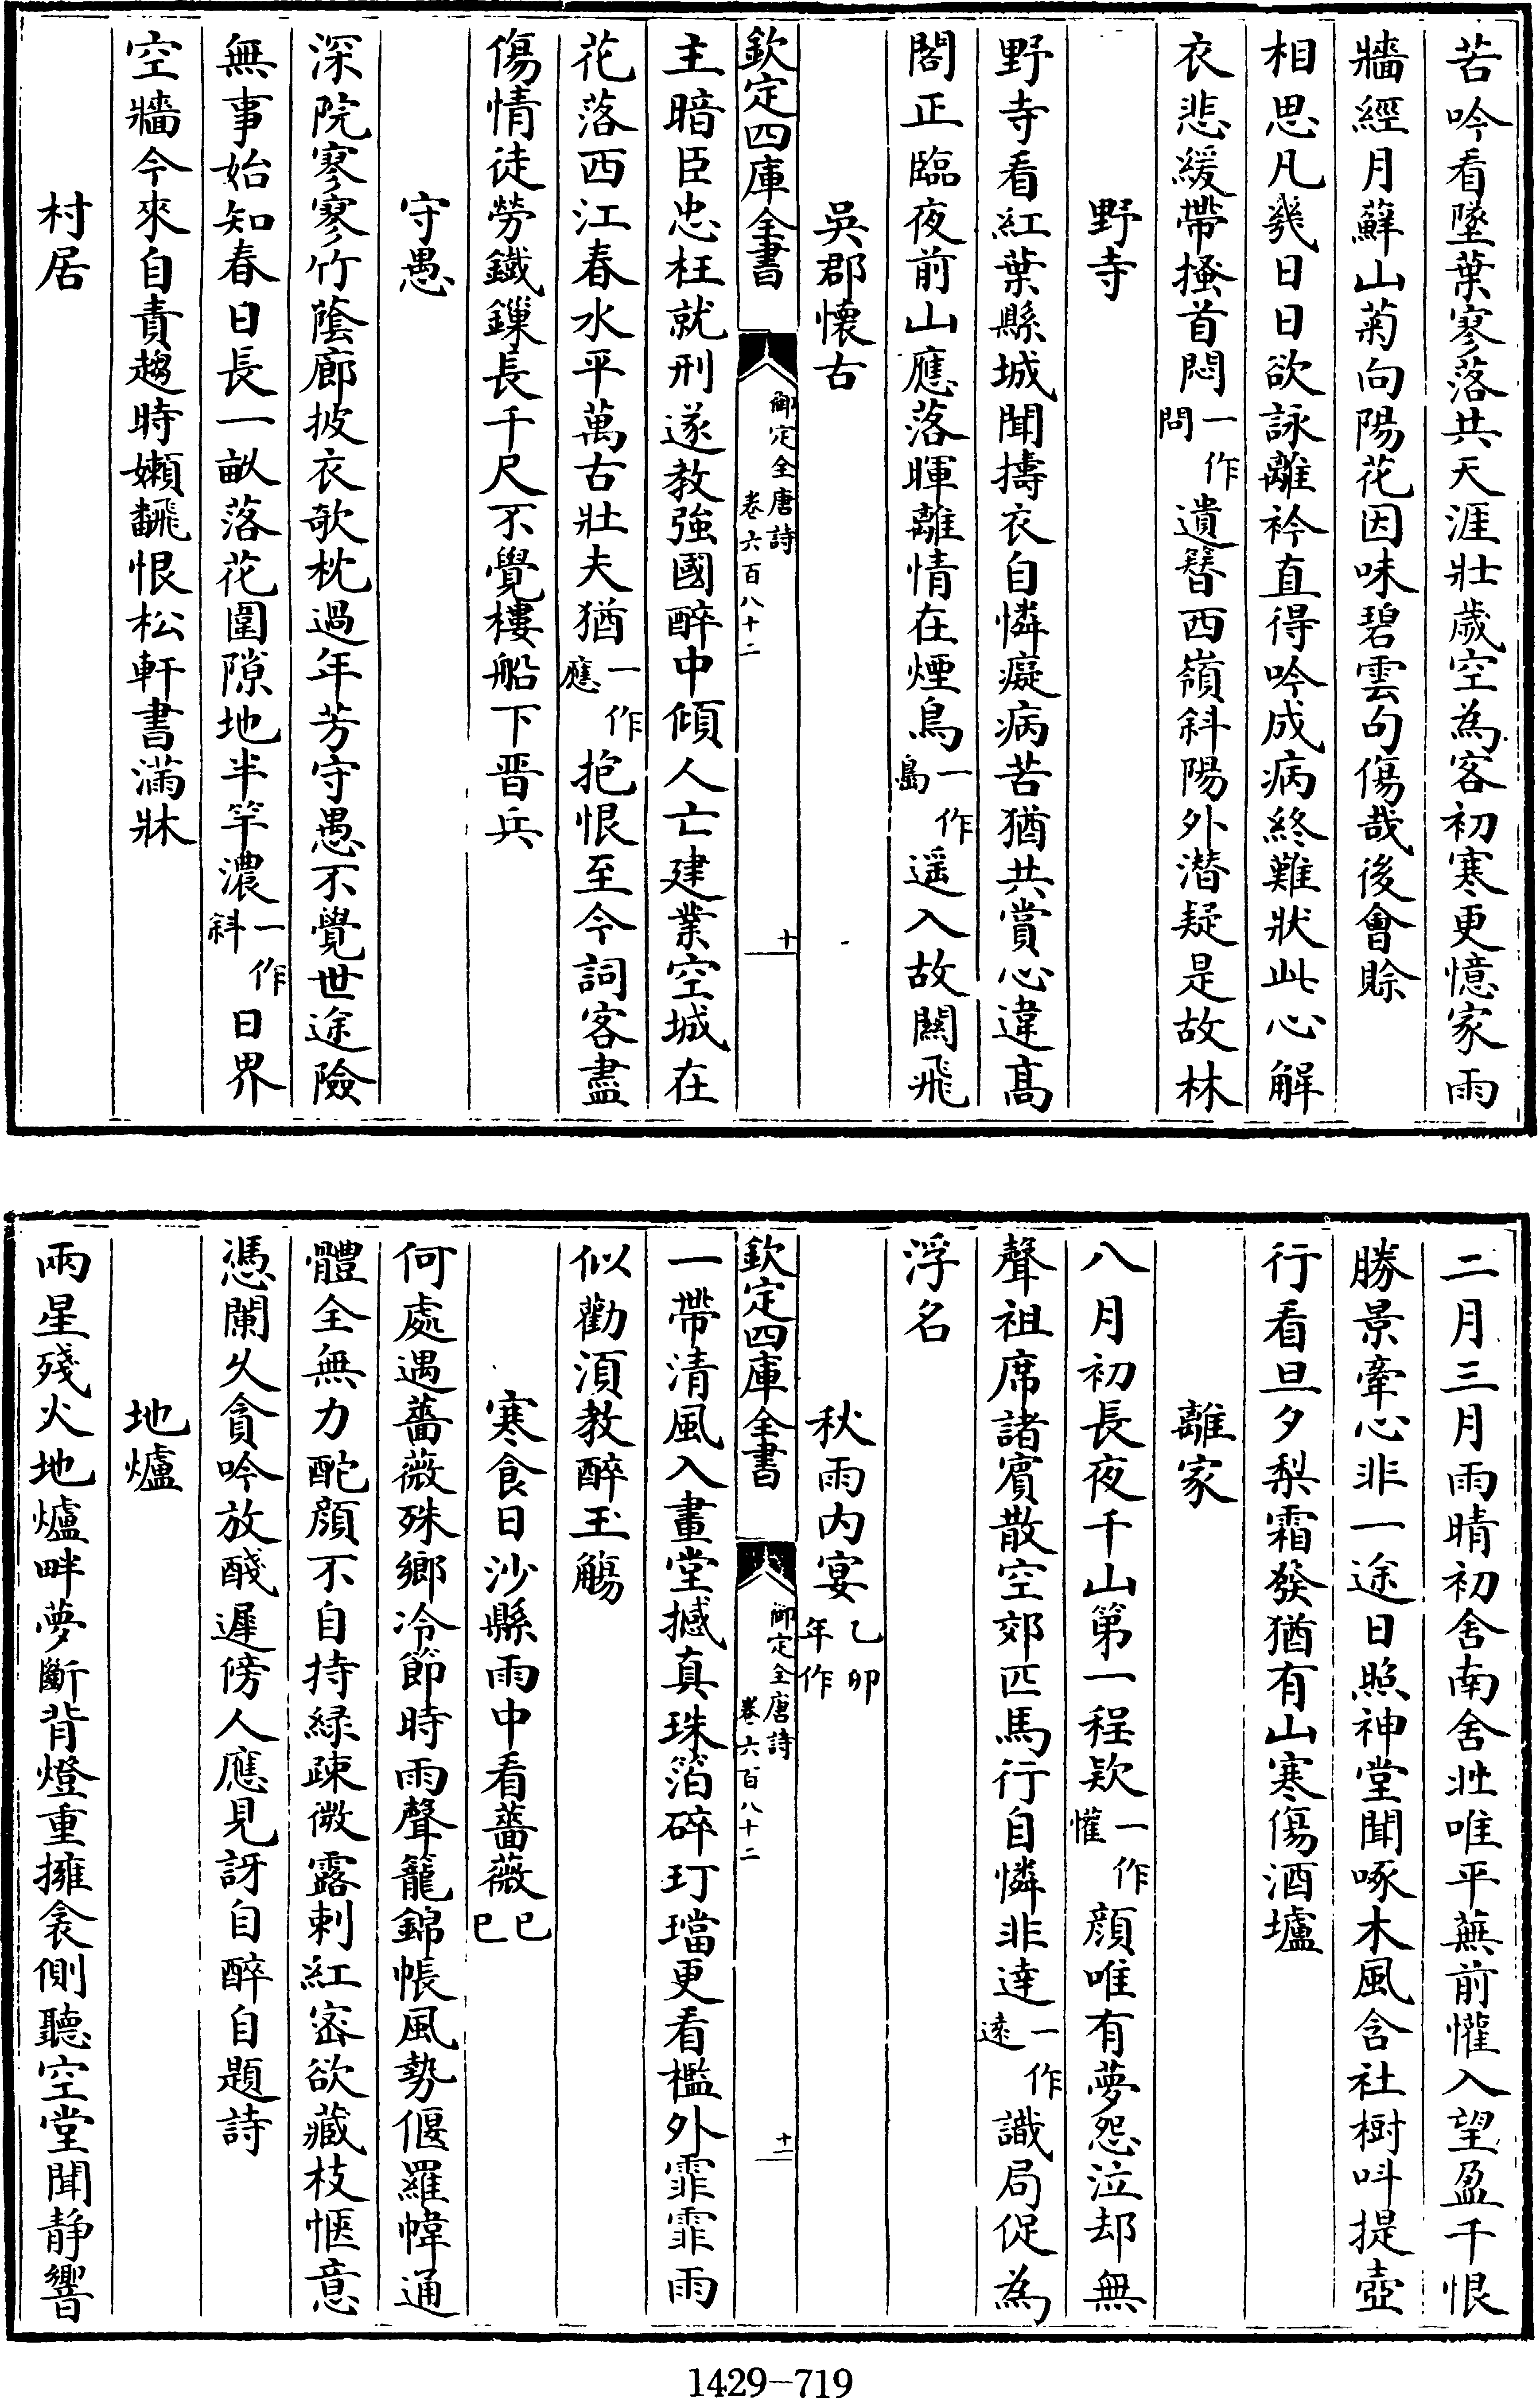 苦吟看墜葉寥落共天涯壯歲空為客初寒更憶家雨
牆經月蘚山菊向陽花因味碧雲句傷哉後會賒
相思凡幾日日欲詠離衿直得吟成病終難狀此心解
衣悲緩帶搔首悶一作問遺簪西嶺斜陽外潛疑是故林
野寺
野寺看紅葉縣城聞擣衣自憐癡病苦猶共賞心違高
閣正臨夜前山應落暉離情在煙鳥一作島遥入故關飛
吳郡懷古
欽定四庫全書
御定全唐詩
卷六百八十二
十
主暗臣忠枉就刑遂教強國醉中傾人亡建業空城在
花落西江春水平萬古壯夫猶一作應抱恨至今詞客盡
傷情徒勞鐵鏁長千尺不覺樓船下晉兵
守愚
深院寥寥竹蔭廊披衣欹枕過年芳守愚不覺世途險
無事始知春日長一畝落花圍隙地半竿濃一作斜日界
空牆今來自責趨時嬾翻恨松軒書滿牀
村居
二月三月雨晴初舍南舍北唯平蕪前懽入望盈千恨
勝景牽心非一途日照神堂聞啄木風含社樹呌提壺
行看旦夕梨霜發猶有山寒傷酒壚
離家
八月初長夜千山第一程欵一作懽顔唯有夢怨泣却無
聲祖席諸賓散空郊匹馬行自憐非達一作逺識局促為
浮名
秋雨内宴乙卯年作
欽定四庫全書
御定全唐詩
卷六百八十二
十一
一帶清風入畫堂撼真珠箔碎玎璫更看檻外霏霏雨
似勸須教醉玉觴
寒食日沙縣雨中看薔薇己巳
何處遇薔薇殊鄉冷節時雨聲籠錦帳風勢偃羅幃通
體全無力酡顔不自持緑疎微露刺紅密欲藏枝愜意
憑闌久貪吟放醆遲傍人應見訝自醉自題詩
地爐
兩星殘火地爐畔夢斷背燈重擁衾側聽空堂聞静響
1429-719